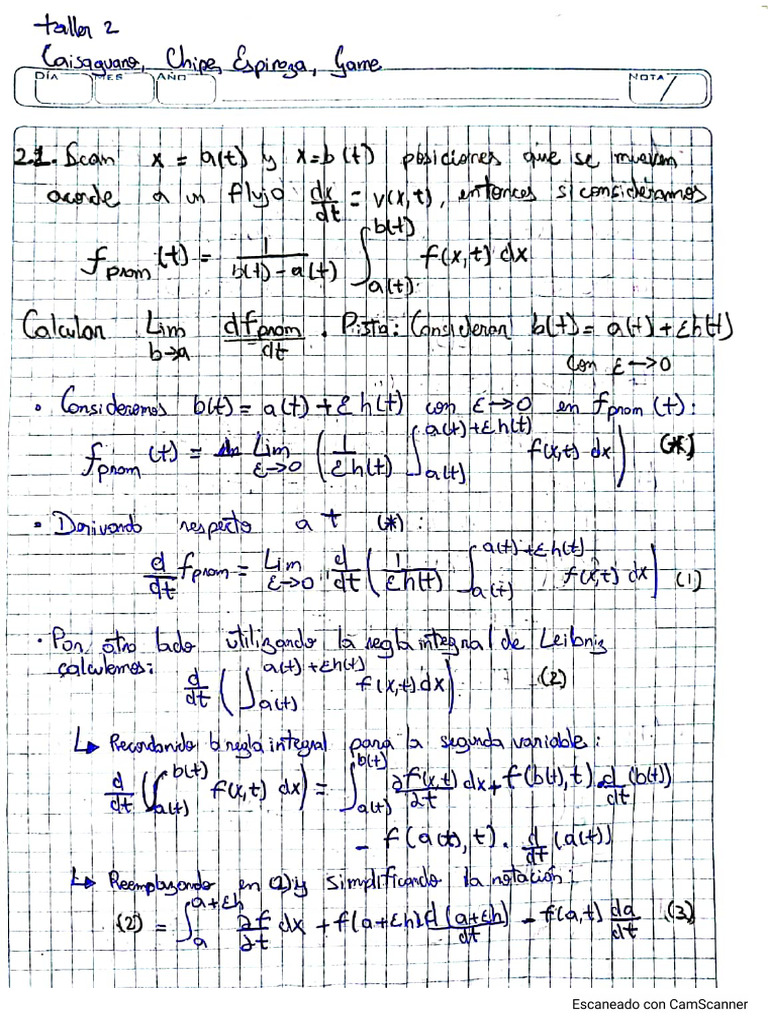 taller 2
Caisaguano, Chipe, Espinoza, Game
DÍA MES AÑO NOTA
2.1. Sean x = a(t) y x = b(t) posiciones que se mueven
acorde a un flujo dx/dt = v(x,t), entonces si consideramos
f_prom(t) = 1/(b(t) - a(t)) ∫_{a(t)}^{b(t)} f(x,t) dx
Calcular Lim_{b→a} df_prom/dt. Pista: Considerar b(t) = a(t) + εh(t)
con ε→0
• Consideremos b(t) = a(t) + εh(t) con ε→0 en f_prom(t):
f_prom(t) = Lim_{ε→0} (1/(εh(t)) ∫_{a(t)}^{a(t)+εh(t)} f(x,t) dx) (*)
• Derivando respecto a t (*):
d/dt f_prom = Lim_{ε→0} d/dt (1/(εh(t)) ∫_{a(t)}^{a(t)+εh(t)} f(x,t) dx) (1)
• Por otro lado utilizando la regla integral de Leibniz
calculemos:
d/dt (∫_{a(t)}^{a(t)+εh(t)} f(x,t) dx) (2)
↳ Recordando la regla integral para la segunda variable:
d/dt (∫_{a(t)}^{b(t)} f(x,t) dx) = ∫_{a(t)}^{b(t)} ∂f(x,t)/∂t dx + f(b(t),t) . d/dt (b(t))
- f(a(t),t) . d/dt (a(t))
↳ Reemplazando en (2) y simplificando la notación:
(2) = ∫_{a}^{a+εh} ∂f/∂t dx + f(a+εh) d(a+εh)/dt - f(a,t) da/dt (3)
Escaneado con CamScanner